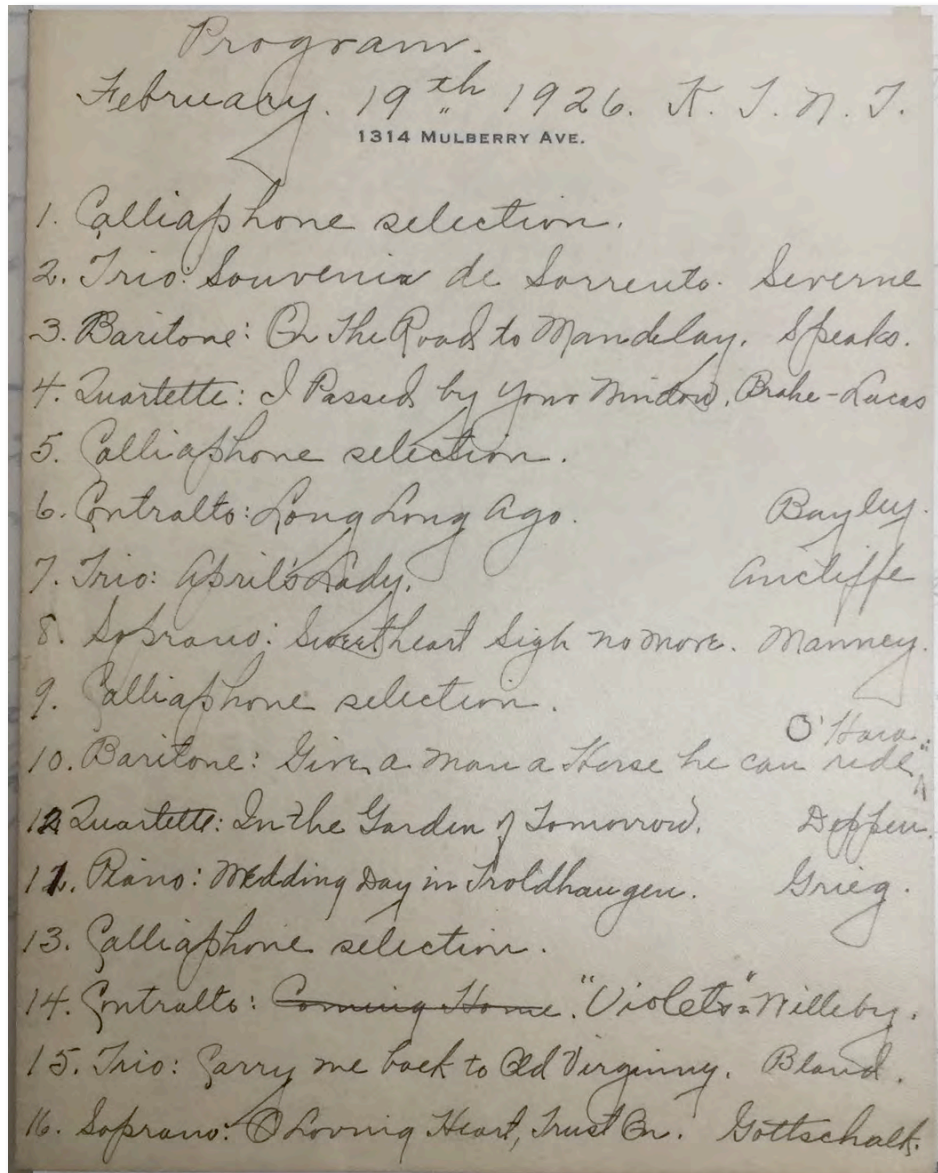 Program.
February. 19th 1926. K. T. N. T.
1314 MULBERRY AVE.
1. Calliaphone selection.
2. Trio: Souvenir de Sorrento. Severne
3. Baritone: On The Road to Mandelay. Speaks.
4. Quartette: I Passed by Your Window. Brahe-Lucas
5. Calliaphone selection.
6. Contralto: Long Long Ago. Bayley.
7. Trio: April's Lady. Ancliffe
8. Soprano: Sweetheart Sigh no more. Manney.
9. Calliaphone selection.
O'Hara.
10. Baritone: Give a man a Horse he can ride"
12 Quartette: In the Garden of Tomorrow. Deppen.
11. Piano: Wedding Day in Troldhaugen. Grieg.
13. Calliaphone selection.
14. Contralto: Coming Home. "Violets" Willeby.
15. Trio: Carry me back to Old Virginny. Bland.
16. Soprano: O Loving Heart, Trust On. Gottschalk.